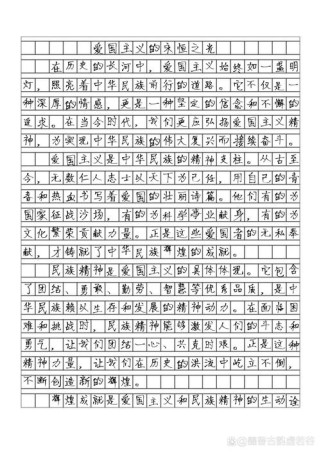 爱国主义的永恒之光
在历史的长河中，爱国主义始终如一盏明
灯，照亮着中华民族前行的道路。它不仅是一
种深厚的情感，更是一种坚定的信念和不懈的
追求。在当今时代，我们更应弘扬爱国主义精
神，为实现中华民族的伟大复兴而接续奋斗。
爱国主义是中华民族的精神支柱。从古至
今，无数仁人志士以天下为己任，用自己的青
春和热血书写着爱国的壮丽诗篇。他们有的为
国家征战沙场，有的为科学事业献身，有的为
文化繁荣贡献力量。正是这些爱国者的无私奉
献，才铸就了中华民族辉煌的成就。
民族精神是爱国主义的具体体现。它包含
了团结、勇敢、勤劳、智慧等优秀品质，是中
华民族赖以生存和发展的精神动力。在面临困
难和挑战时，民族精神能够激发人们的斗志和
勇气，让我们团结一心、共克时艰。正是这种
精神力量，让我们在历史的洪流中屹立不倒，
不断创造新的辉煌。
辉煌成就是爱国主义和民族精神的生动诠